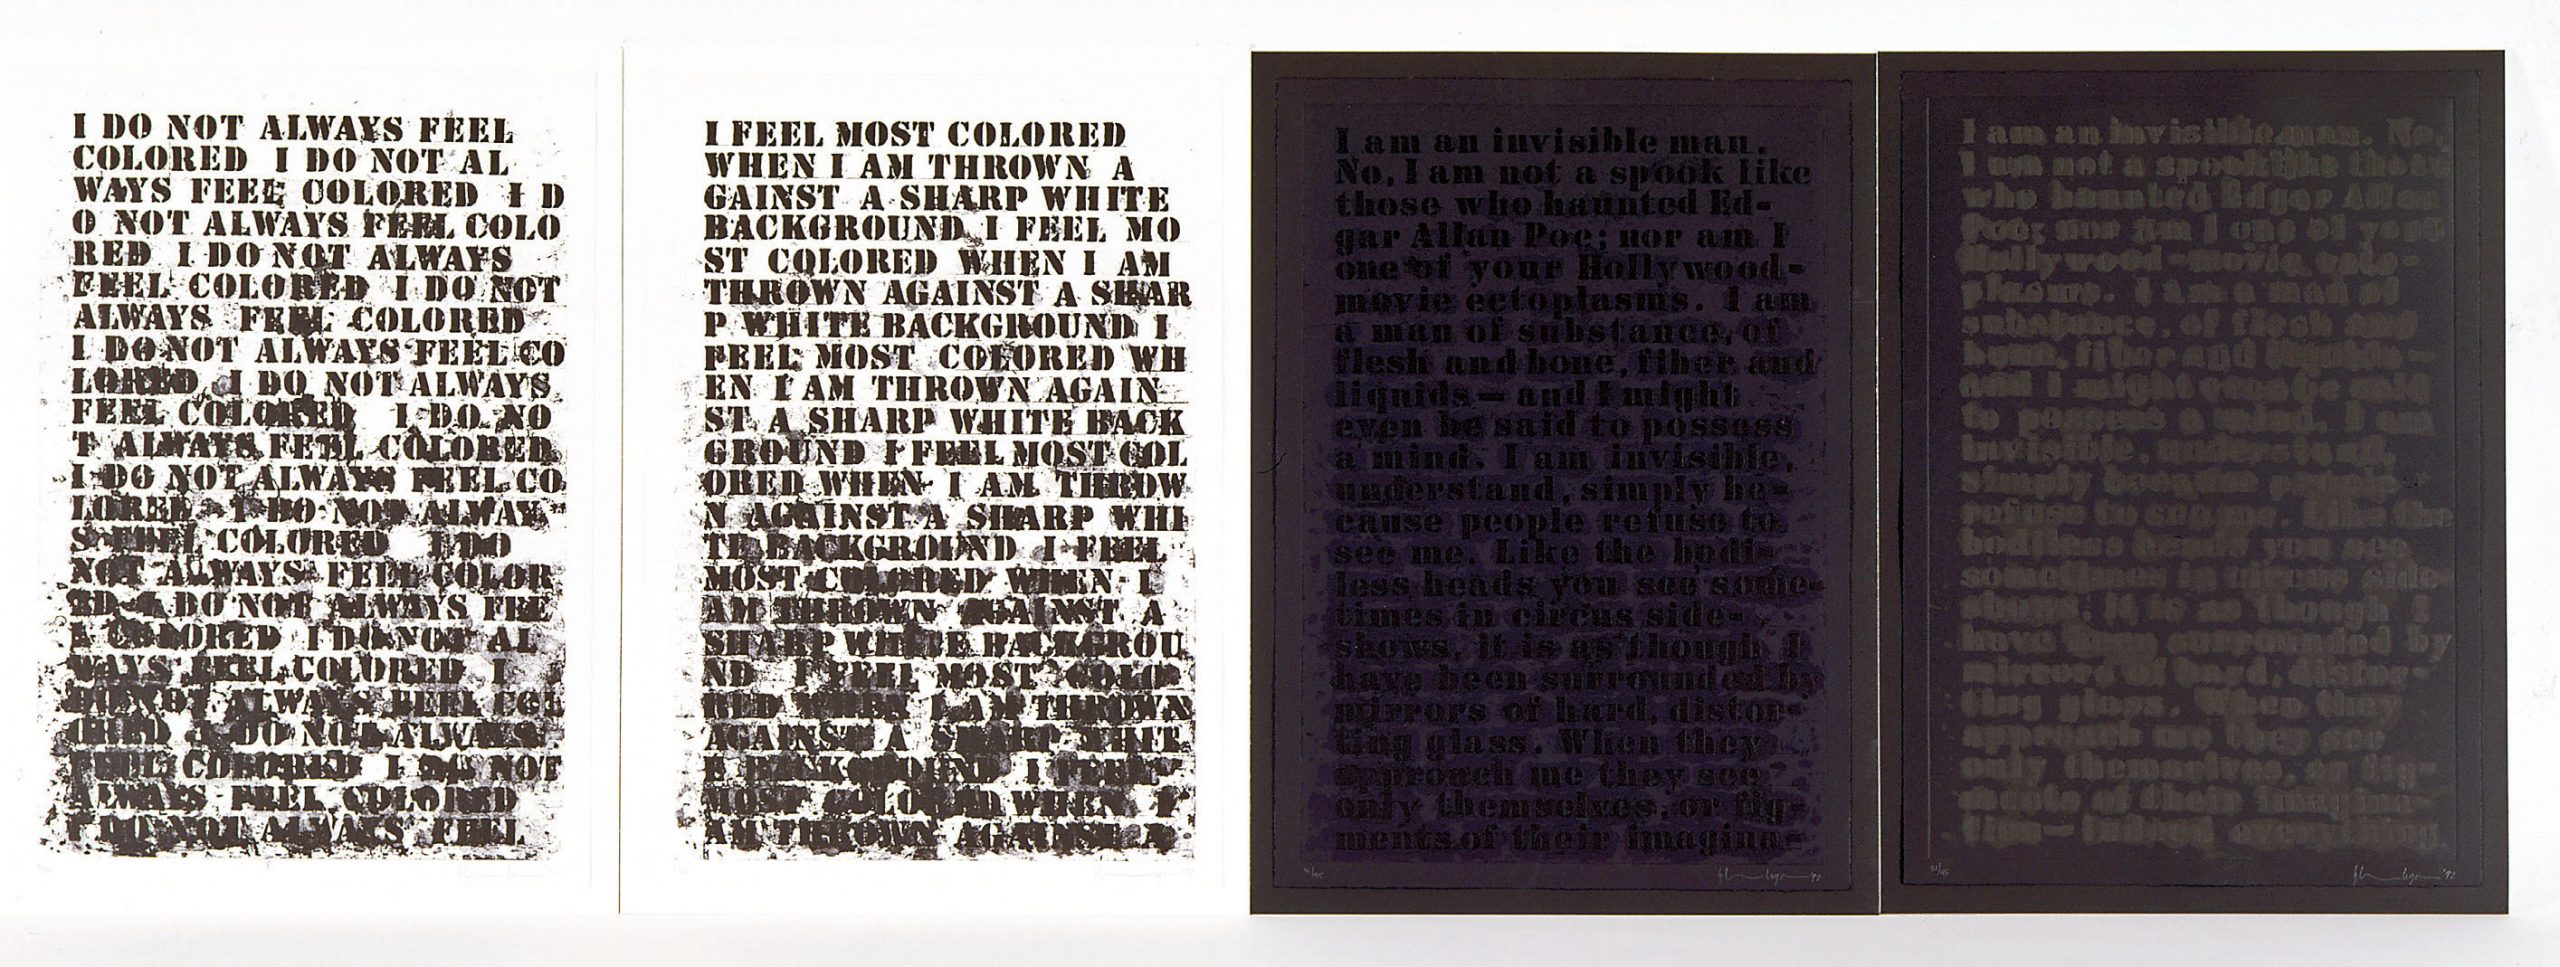 I DO NOT ALWAYS FEEL
COLORED I DO NOT AL
WAYS FEEL COLORED I D
O NOT ALWAYS FEEL COLO
RED I DO NOT ALWAYS
FEEL COLORED I DO NOT
ALWAYS FEEL COLORED
I DO NOT ALWAYS FEEL CO
LORED I DO NOT ALWAYS
FEEL COLORED I DO NO
T ALWAYS FEEL COLORED
I DO NOT ALWAYS FEEL CO
LORED I DO NOT ALWAY
S FEEL COLORED I DO
NOT ALWAYS FEEL COLOR
ED I DO NOT ALWAYS FEE
L COLORED I DO NOT AL
WAYS FEEL COLORED I
DO NOT ALWAYS FEEL COL
ORED I DO NOT ALWAYS
FEEL COLORED I DO NOT
ALWAYS FEEL COLORED
I DO NOT ALWAYS FEEL
I FEEL MOST COLORED
WHEN I AM THROWN A
GAINST A SHARP WHITE
BACKGROUND I FEEL MO
ST COLORED WHEN I AM
THROWN AGAINST A SHAR
P WHITE BACKGROUND I
FEEL MOST COLORED WH
EN I AM THROWN AGAIN
ST A SHARP WHITE BACK
GROUND I FEEL MOST COL
ORED WHEN I AM THROW
N AGAINST A SHARP WHI
TE BACKGROUND I FEEL
MOST COLORED WHEN I
AM THROWN AGAINST A
SHARP WHITE BACKGROU
ND I FEEL MOST COLO
RED WHEN I AM THROWN
AGAINST A SHARP WHIT
E BACKGROUND I FEEL
MOST COLORED WHEN I
AM THROWN AGAINST A
I am an invisible man.
No, I am not a spook like
those who haunted Ed-
gar Allan Poe; nor am I
one of your Hollywood-
movie ectoplasms. I am
a man of substance, of
flesh and bone, fiber and
liquids — and I might
even be said to possess
a mind. I am invisible,
understand, simply be-
cause people refuse to
see me. Like the bodi-
less heads you see some-
times in circus side-
shows, it is as though I
have been surrounded by
mirrors of hard, distor-
ting glass. When they
approach me they see
only themselves, or fig-
ments of their imagina-
I am an invisible man. No,
I am not a spook like those
who haunted Edgar Allan
Poe; nor am I one of your
Hollywood-movie ecto-
plasms. I am a man of
substance, of flesh and
bone, fiber and liquids—
and I might even be said
to possess a mind. I am
invisible, understand,
simply because people
refuse to see me. Like the
bodiless heads you see
sometimes in circus side-
shows, it is as though I
have been surrounded by
mirrors of hard, distor-
ting glass. When they
approach me they see
only themselves, or fig-
ments of their imagina-
tion—